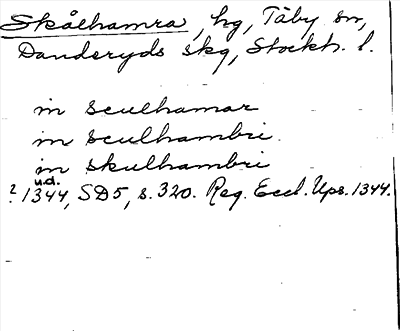 Skålhamra, hg, Täby sn,
Danderyds skg, Stockh. l.
in Sculhamar
in Sculhambri
in Skulhambri
u.d.
? 1344, SD5, s. 320. Reg. Eccl. Ups. 1344.